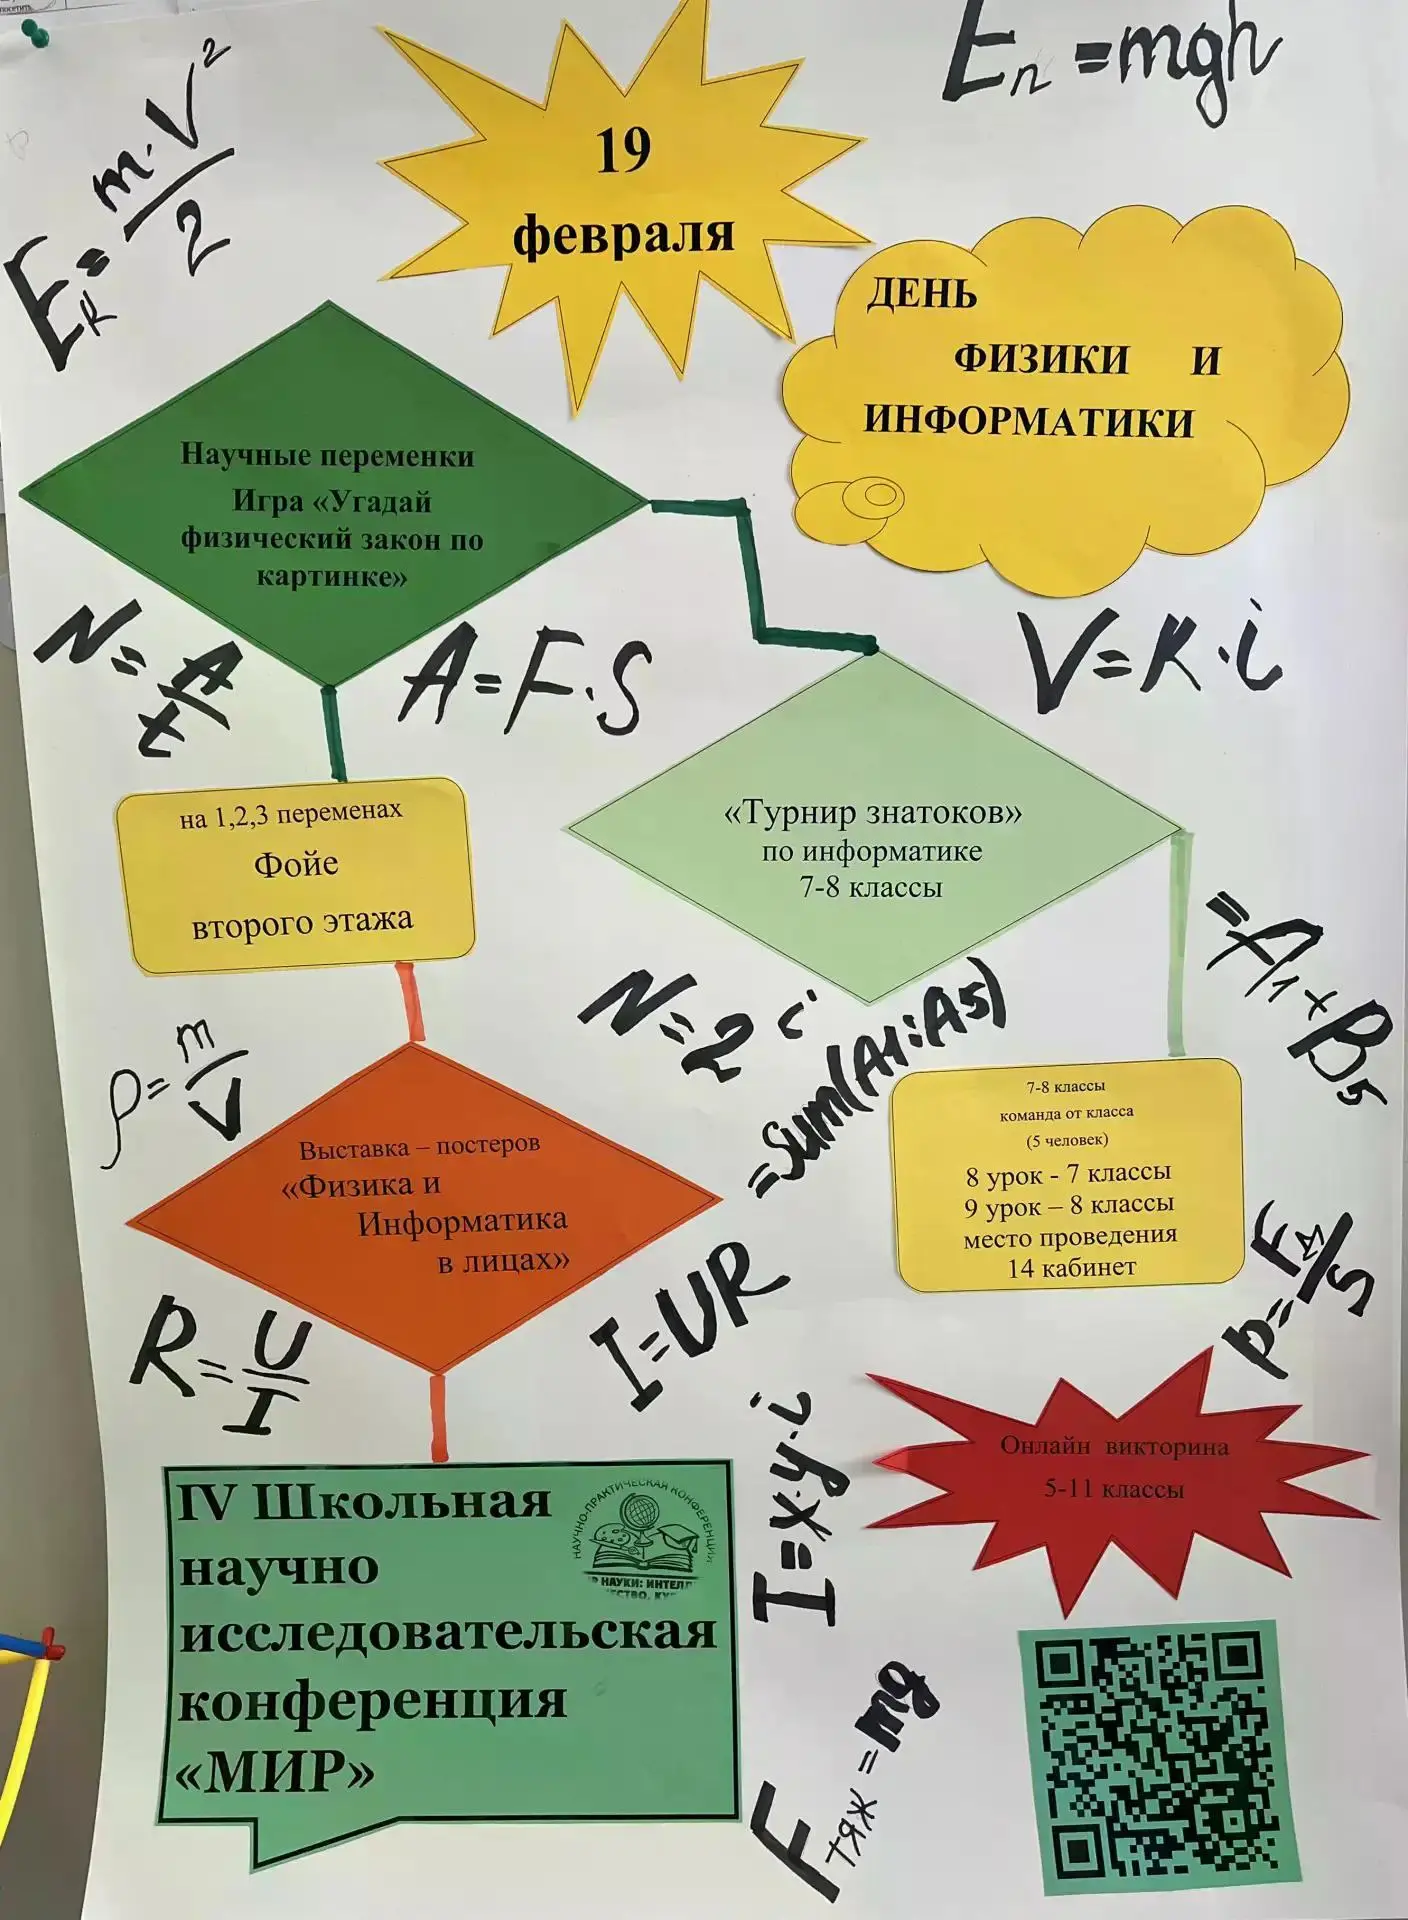 E п = mgh
Eк = m·V²/2
19
февраля
ДЕНЬ
ФИЗИКИ И
ИНФОРМАТИКИ
Научные переменки
Игра «Угадай
физический закон по
картинке»
N = A/t
A = F·S
V = K·i
на 1,2,3 переменах
Фойе
второго этажа
«Турнир знатоков»
по информатике
7-8 классы
=A1+B5
N=2 i
=Sum(A1:A5)
ρ = m/V
7-8 классы
команда от класса
(5 человек)
8 урок - 7 классы
9 урок – 8 классы
место проведения
14 кабинет
Выставка – постеров
«Физика и
Информатика
в лицах»
R = U/I
I=UR
I=x·y·i
Онлайн викторина
5-11 классы
IV Школьная
научно
исследовательская
конференция
«МИР»
НАУЧНО-ПРАКТИЧЕСКАЯ КОНФЕРЕНЦИЯ
Fтяж = mg